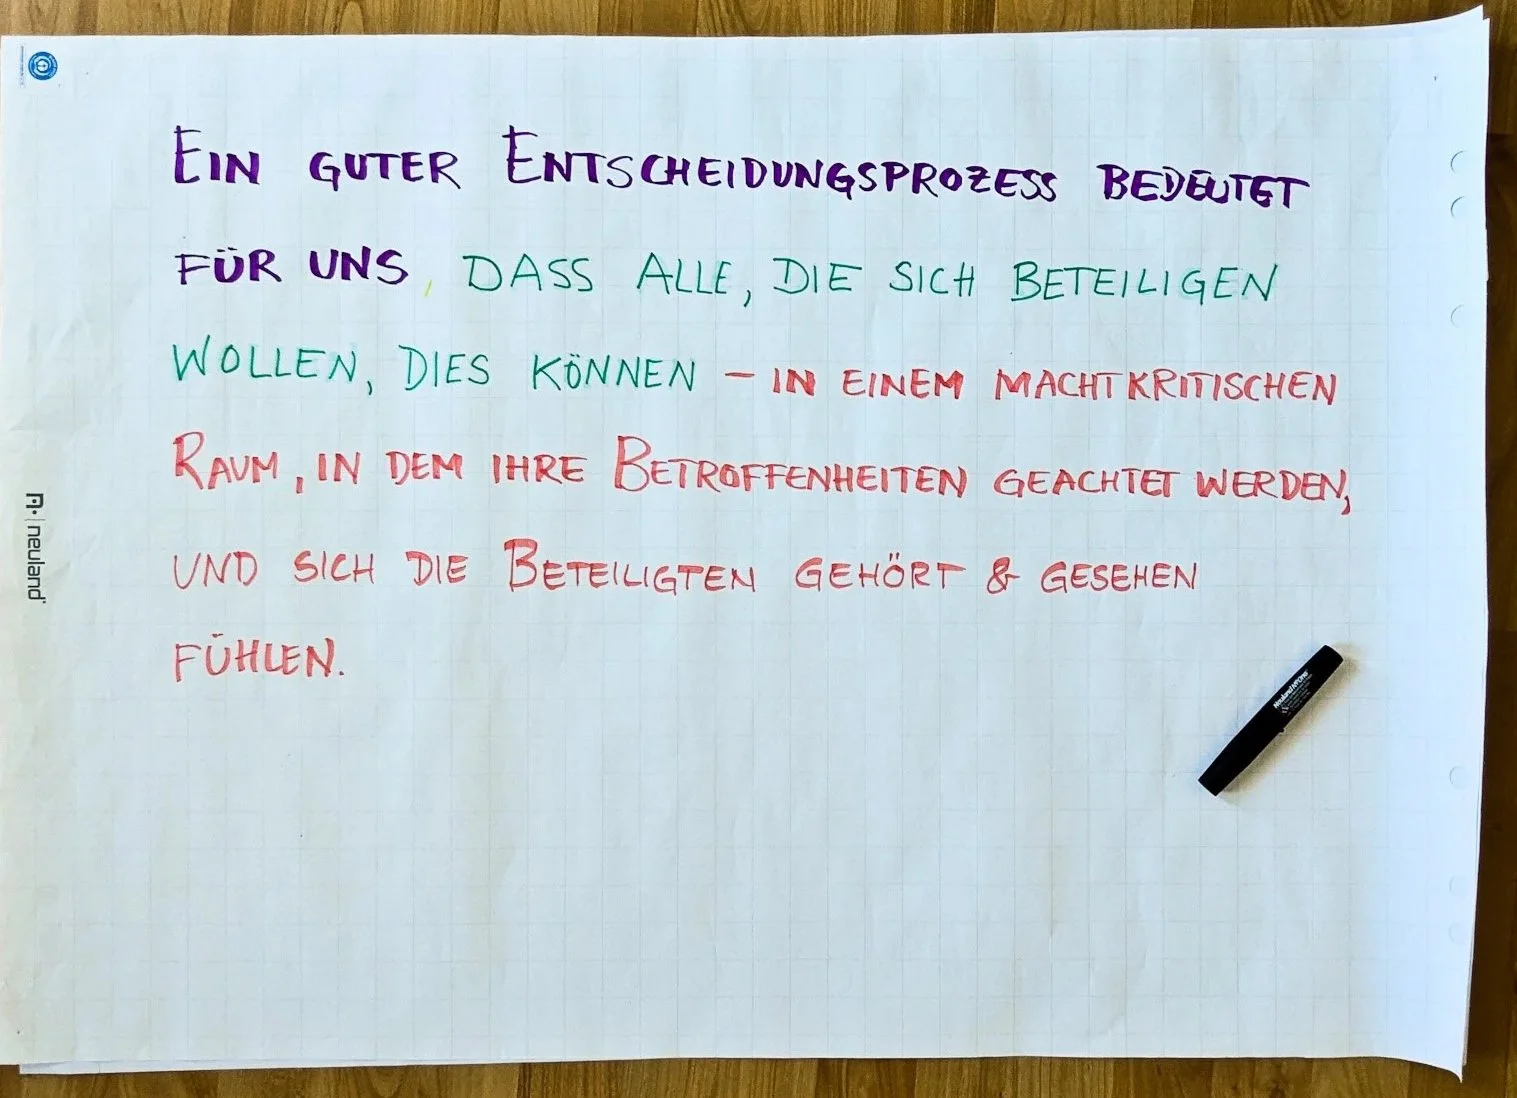 EIN GUTER ENTSCHEIDUNGSPROZESS BEDEUTET
FÜR UNS, DASS ALLE, DIE SICH BETEILIGEN
WOLLEN, DIES KÖNNEN – IN EINEM MACHTKRITISCHEN
RAUM, IN DEM IHRE BETROFFENHEITEN GEACHTET WERDEN,
UND SICH DIE BETEILIGTEN GEHÖRT & GESEHEN
FÜHLEN.
neuland